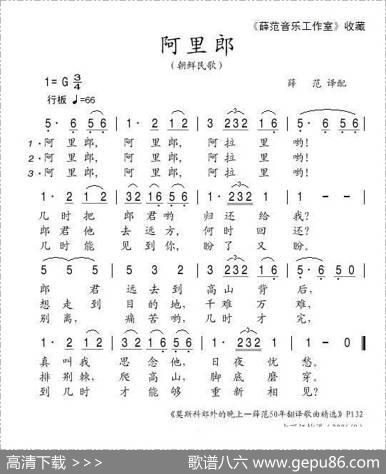 《薛范音乐工作室》收藏
阿里郎
(朝鲜民歌)
1=G 3/4
薛 范 译配
行板 ♩=66
5· 6 5 6 | 1· 2 1 2 | 3 2 3 2 1 6 | 5· 6 5 6 |
1·阿 里 郎, 阿 里 郎, 阿 拉 里 哟!
2·阿 里 郎, 阿 里 郎, 阿 拉 里 哟!
3·阿 里 郎, 阿 里 郎, 阿 拉 里 哟!
1· 2 1 2 | 3 2 1 6 5 6 | 1· 2 3 2 1 | 1 - - |
几 时 把 郎 君 哟 归 还 给 我?
郎 君 他 去 远 方, 何 时 回 还?
几 时 能 见 到 你, 盼 了 又 盼。
5 5 5 | 5 3 2 | 3 2 3 2 1 6 | 5· 6 5 0 |
郎 君 远 去 到 高 山 背 后,
想 走 到 目 的 地, 千 难 万 难,
别 离, 痛 苦 哟, 几 时 才 完,
1· 2 1 2 | 3 2 1 6 5 6 | 1· 2 3 2 1 | 1 1 0
真 叫 我 思 念 他, 日 夜 忧 愁。
排 荆 棘, 爬 高 山, 脚 底 磨 穿。
到 几 时 才 能 够 重 新 相 见?
《莫斯科郊外的晚上—薛范50年翻译歌曲精选》P132
高清下载 >>>
歌谱八六 —— www.gepu86.com